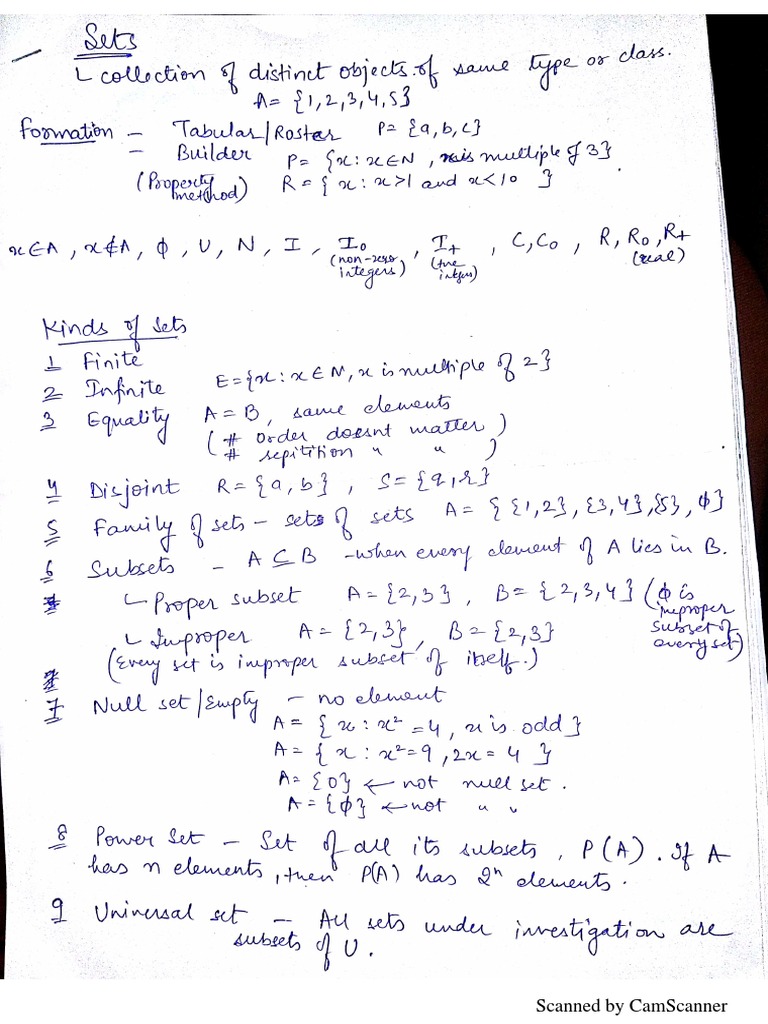 Sets
└ collection of distinct objects of same type or class.
A = {1,2,3,4,5}
Formation – Tabular/Roster P = {a,b,c}
– Builder P = {x : x∈N, x is multiple of 3}
(Property method) R = { x : x>1 and x<10 }
x∈A , x∉A , ϕ , U , N , I , I₀ (non-zero integers) , I₊ (+ve integers) , C, C₀ , R, R₀, R₊ (real)
Kinds of Sets
1 Finite
2 Infinite E = {x : x∈N, x is multiple of 2}
3 Equality A = B, same elements
( # order doesnt matter )
# repitition " " )
4 Disjoint R = {a,b} , S = {q,r}
5 Family of sets – sets of sets A = { {1,2}, {3,4}, {5}, ϕ }
6 Subsets – A ⊆ B – when every element of A lies in B.
└ Proper subset A = {2,3} , B = {2,3,4} (ϕ is improper subset of every set)
└ Improper A = {2,3} , B = {2,3}
(Every set is improper subset of itself.)
7 Null set/Empty – no element
A = { x : x² = 4 , x is odd }
A = { x : x² = 9 , 2x = 4 }
A = {0} ← not null set .
A = {ϕ} ← not " "
8 Power Set – Set of all its subsets , P(A) . If A
has n elements, then P(A) has 2ⁿ elements.
9 Universal set – All sets under investigation are
subsets of U.
Scanned by CamScanner